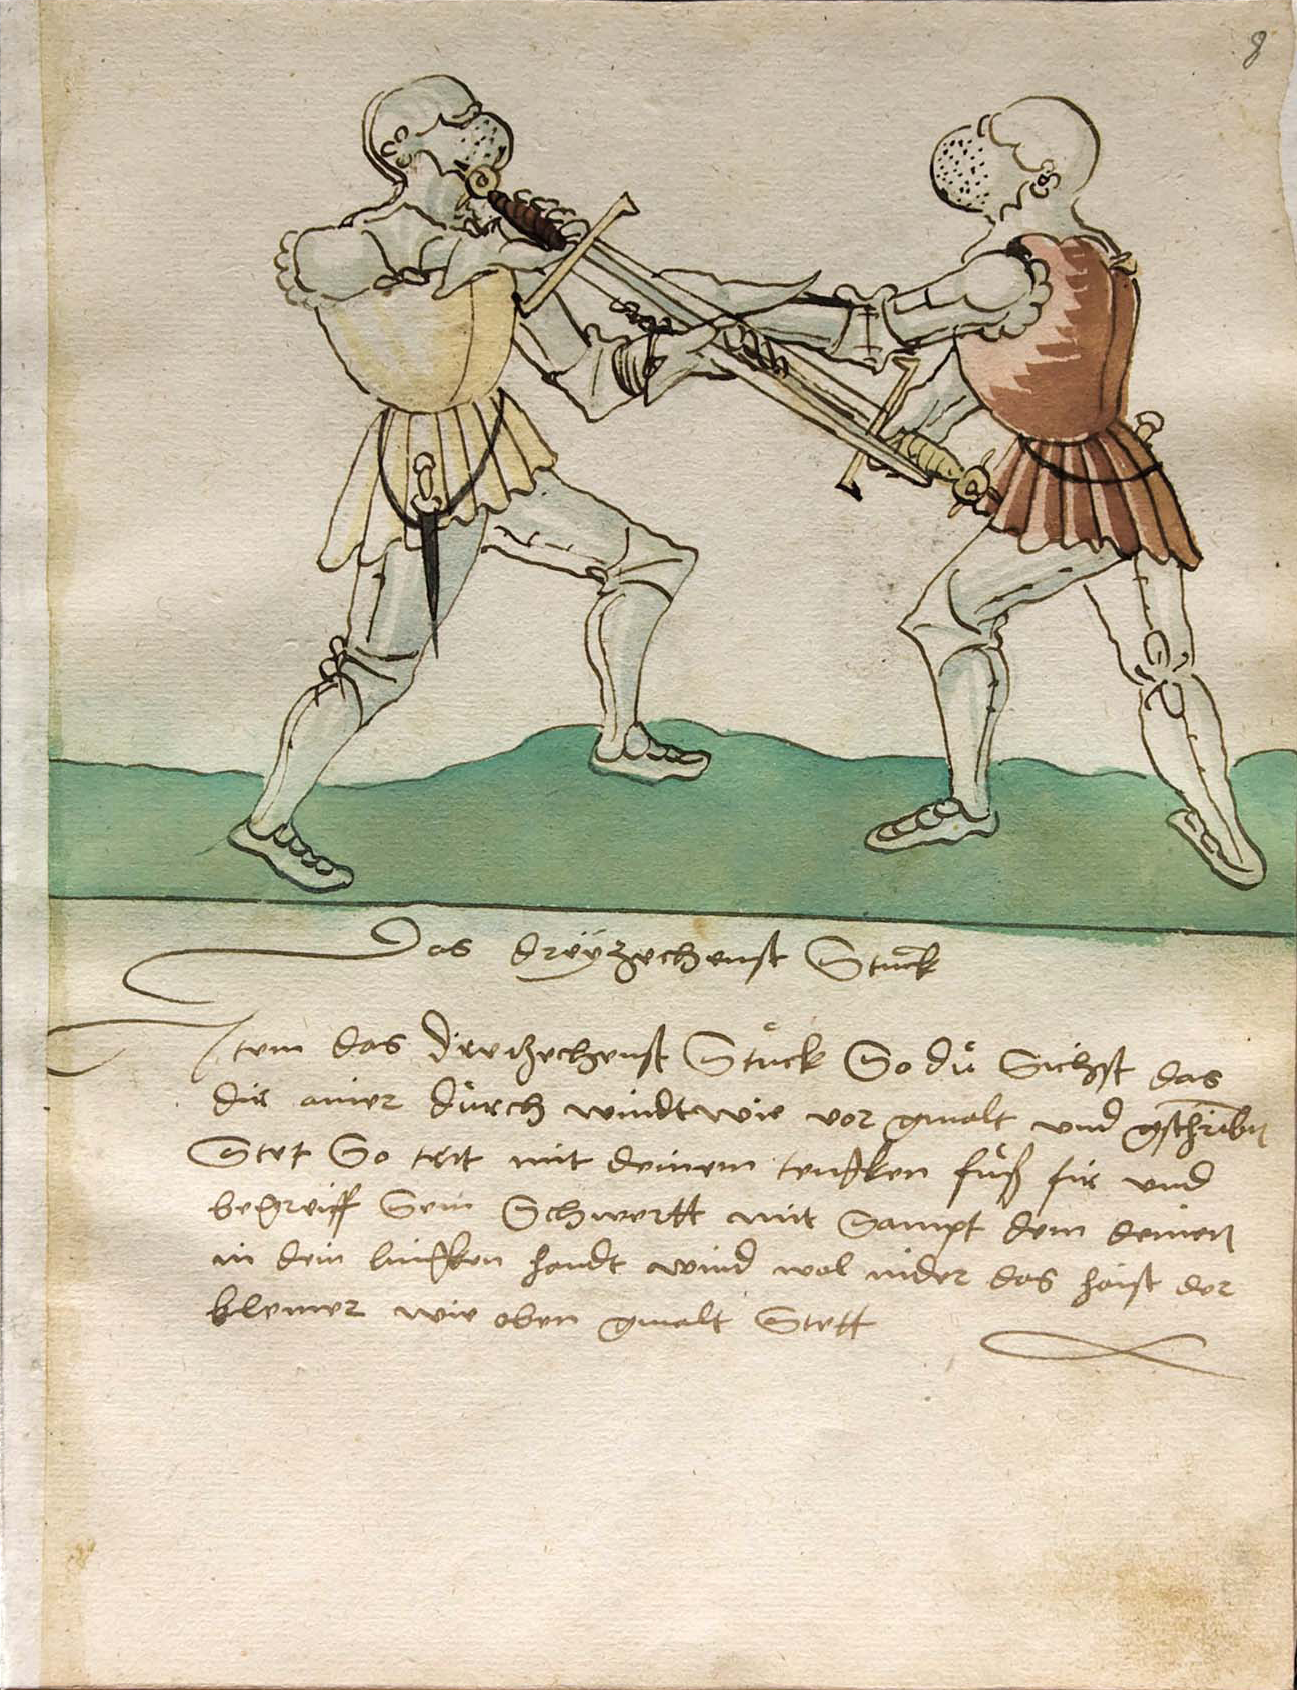 8
Das dreÿzechenst Stuck
Item das Dreizechenst Stuck So du Sichst das
dir ainer durch windt wie vor gmalt und gschribn
Stet So trit mit deinem lenken fuß für und
begreiff Sein Schwertt mit Sampt dem deinen
in dein lincken handt wind wol nider das haist der
klemer wie oben gmalt Stett